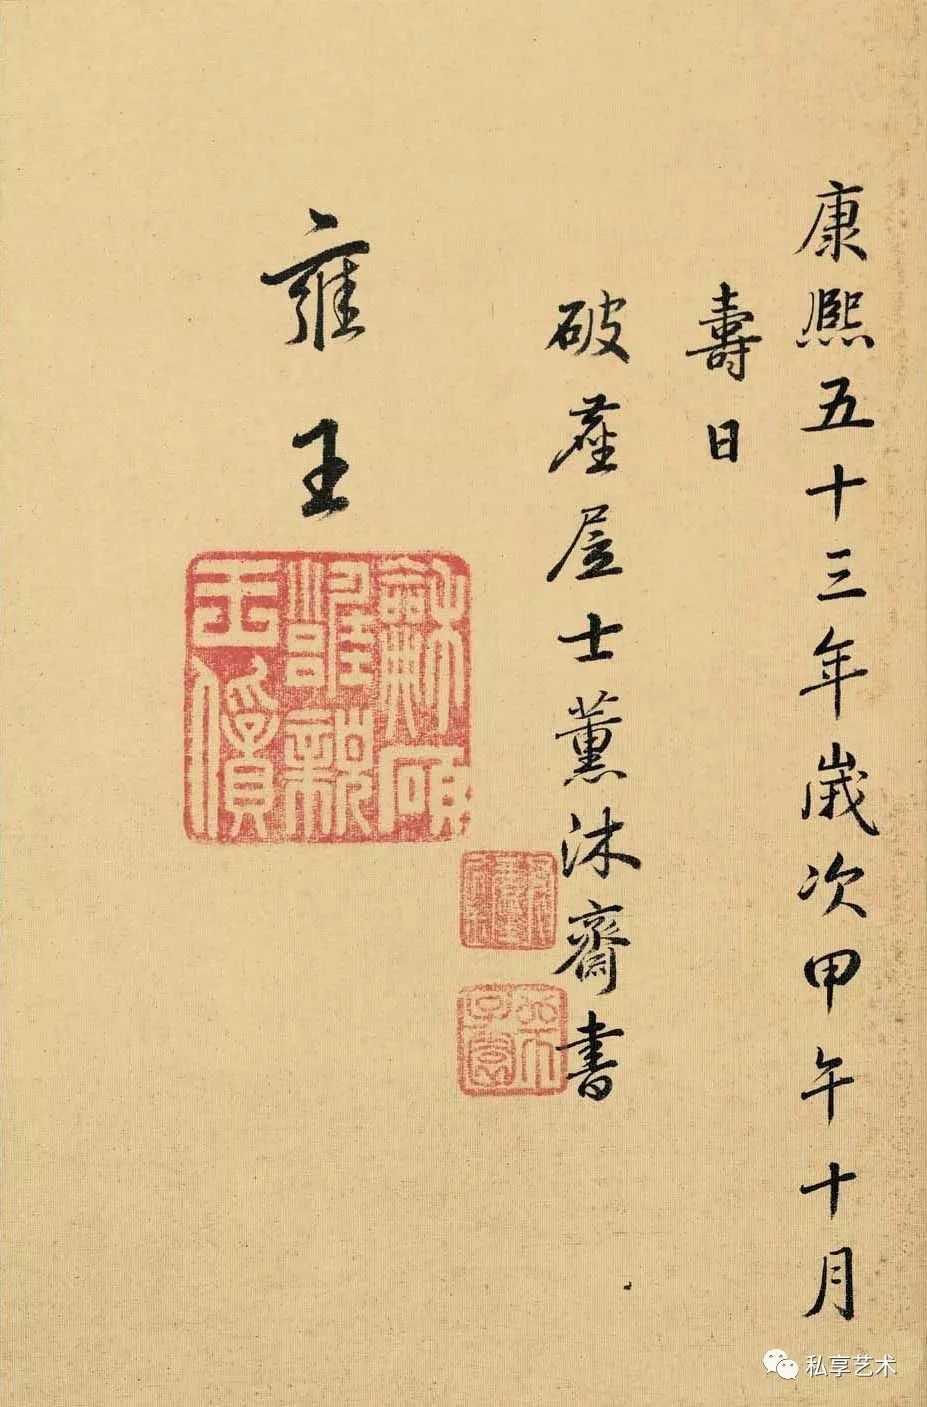 康熙五十三年歲次甲午十月
壽日
破塵居士薰沐齋書
雍王
龢碩
雝親
王
私享艺术